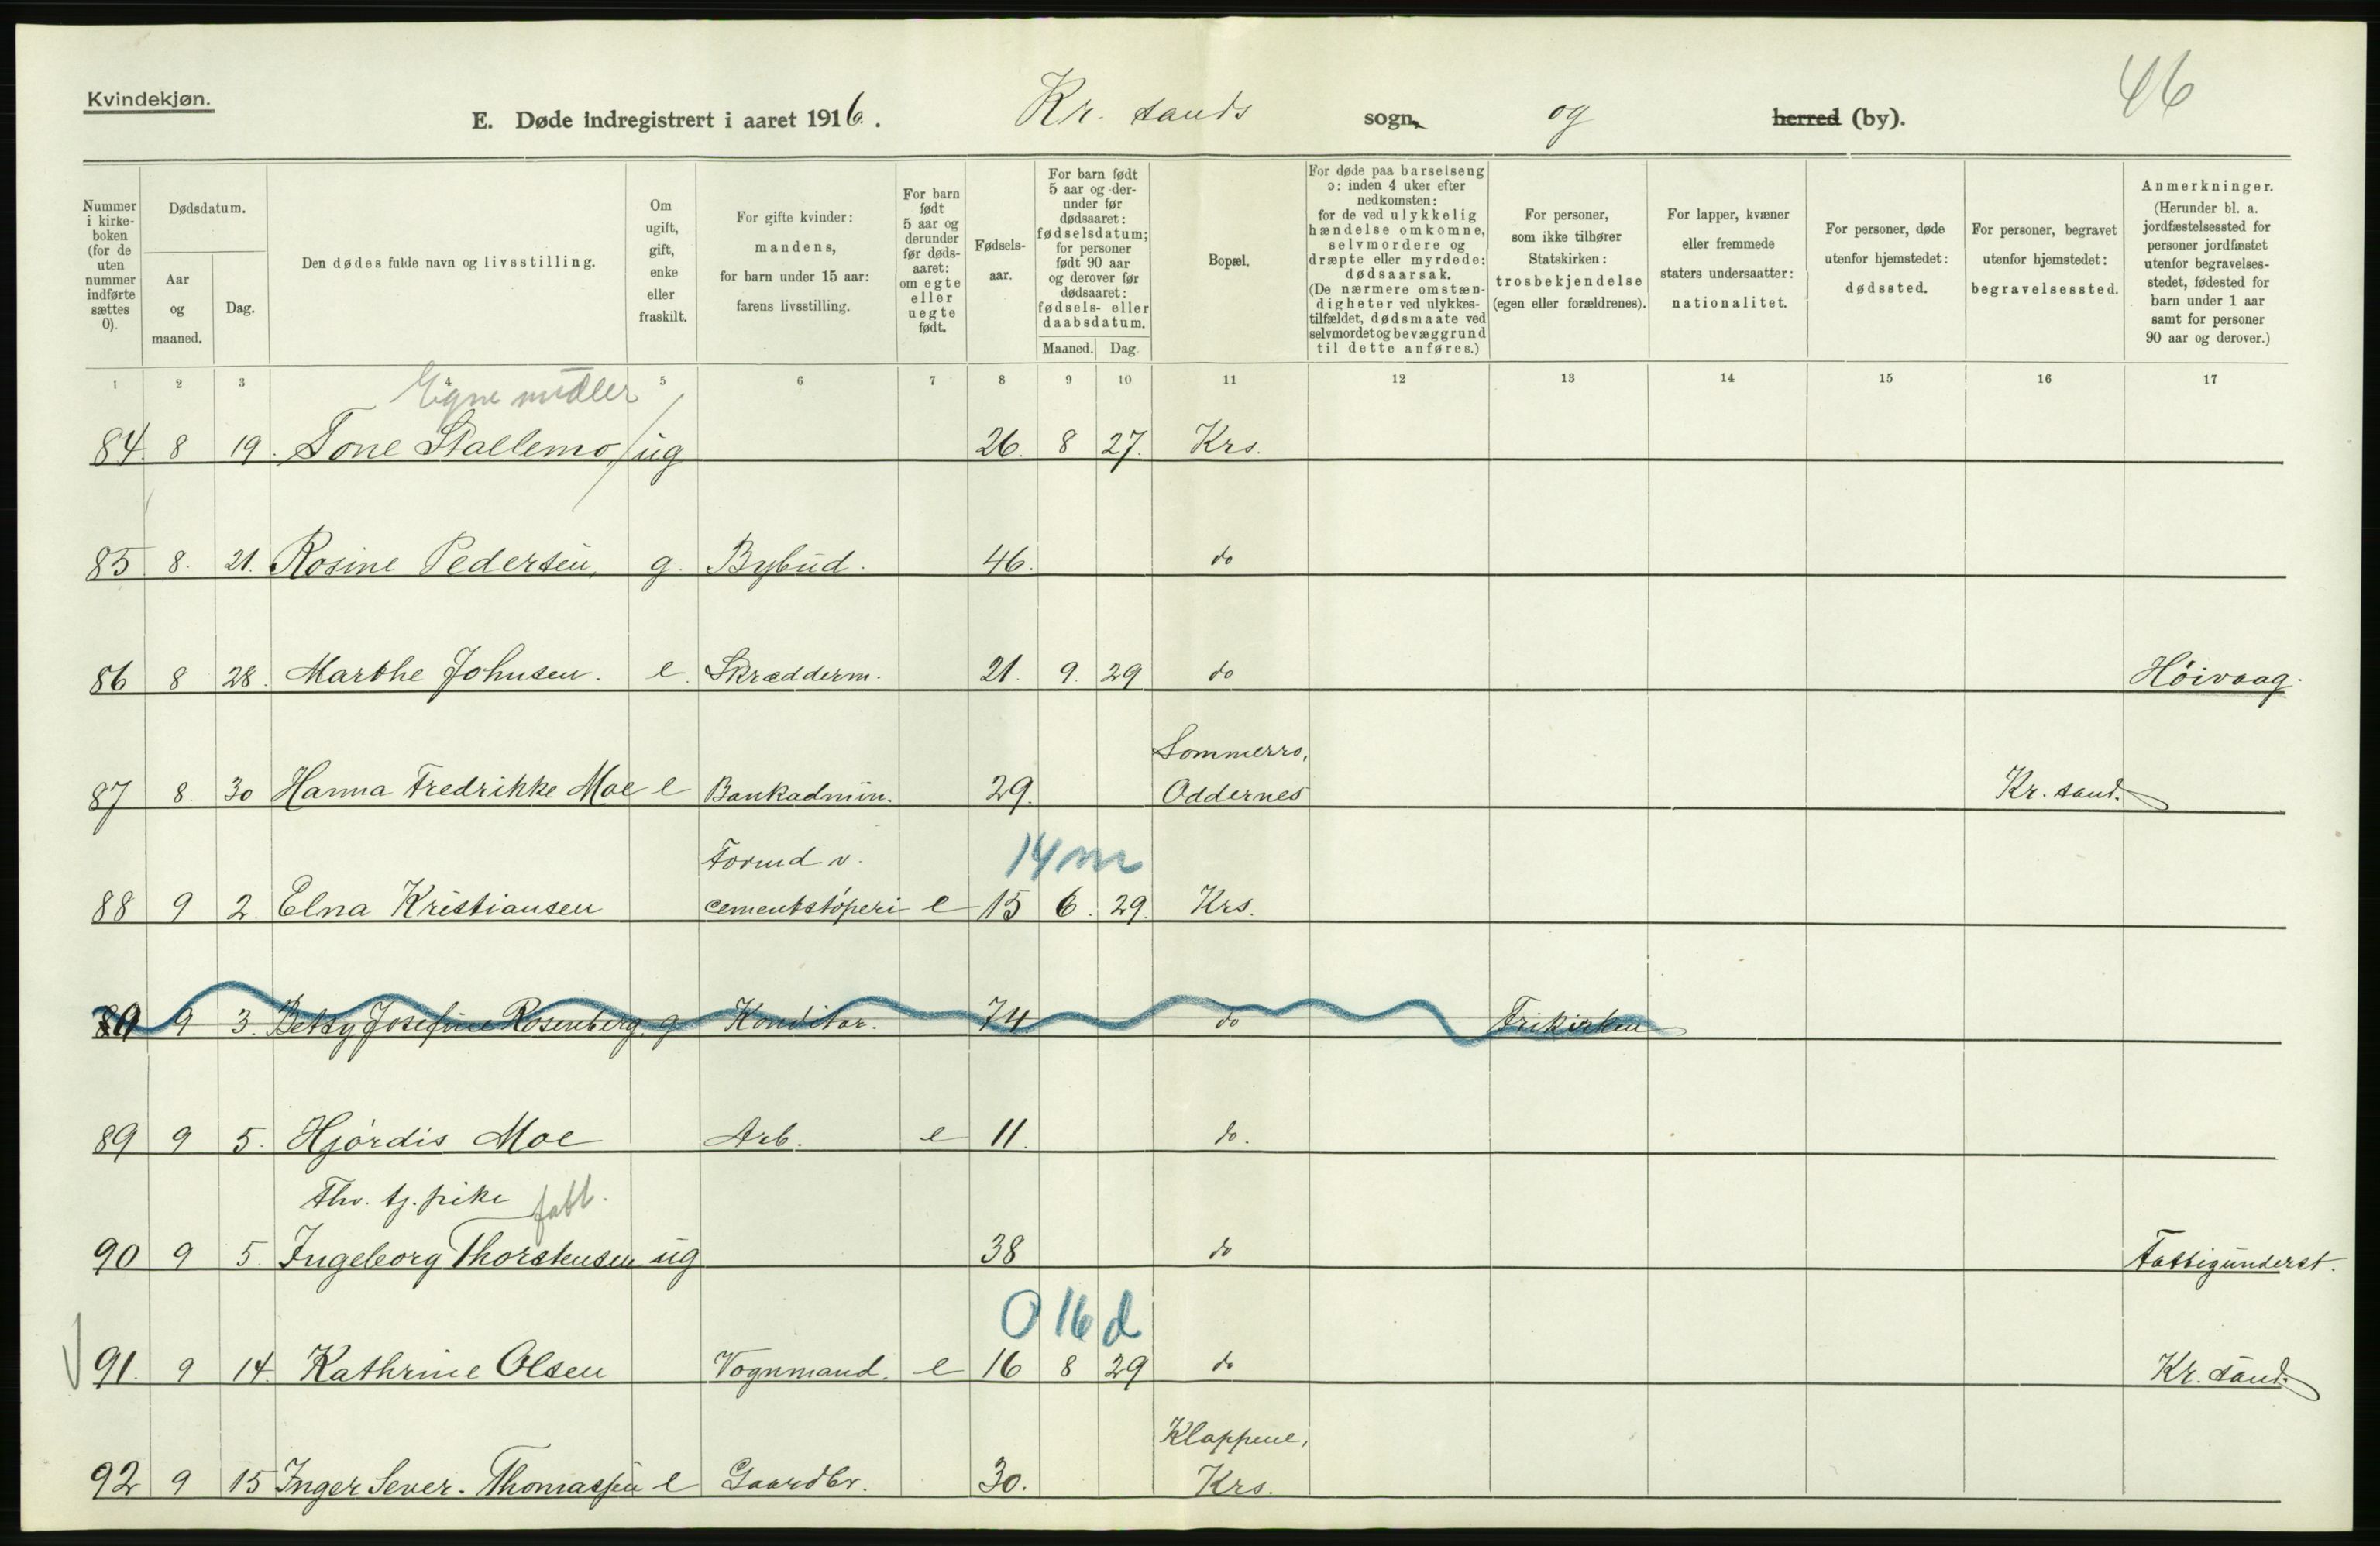 Kvindekjøn.
46
E. Døde indregistrert i aaret 1916. Kr. sands sogn, og herred (by).
Nummer i kirke-boken (for de uten nummer indførte sættes 0).
Dødsdatum.
Aar og maaned.
Dag.
Den dødes fulde navn og livsstilling.
Om ugift, gift, enke eller fraskilt.
For gifte kvinder: mandens, for barn under 15 aar: farens livsstilling.
For barn født 5 aar og derunder før døds-aaret: om egte eller uegte født.
Fødsels-aar.
For barn født 5 aar og der-under før dødsaaret: fødselsdatum; for personer født 90 aar og derover før dødsaaret: fødsels- eller daabsdatum.
Maaned. Dag.
Bopæl.
For døde paa barselseng ɔ: inden 4 uker efter nedkomsten: for de ved ulykkelig hændelse omkomne, selvmordere og dræpte eller myrdede: dødsaarsak. (De nærmere omstæn-digheter ved ulykkes-tilfældet, dødsmaate ved selvmordet og bevæggrund til dette anføres.)
For personer, som ikke tilhører Statskirken: trosbekjendelse (egen eller forældrenes).
For lapper, kvæner eller fremmede staters undersaatter: nationalitet.
For personer, døde utenfor hjemstedet: dødssted.
For personer, begravet utenfor hjemstedet: begravelsessted.
Anmerkninger. (Herunder bl. a. jordfæstelsessted for personer jordfæstet utenfor begravelses-stedet, fødested for barn under 1 aar samt for personer 90 aar og derover.)
1 2 3 4 5 6 7 8 9 10 11 12 13 14 15 16 17
Egne midler
84. 8 19. Tone Stallemo, ug 26. 8 27. Krs.
85 8. 21. Rosine Pedersen, g. Bybud. 46. do
86 8 28. Marthe Johnsen. e. Skrædderm. 21. 9. 29 do Høivaag.
Sommerro,
87 8. 30 Hanna Fredrikke Moe e Bankadmin. 29. Oddernes Kr. sand.
Formd v. 14 m
88 9 2. Elna Kristiansen cementstøperi e 15 6. 29. Krs.
89 9 3. Betsy Josefine Rosenberg, g Konditor. 74. do Frikirken
89 9 5. Hjørdis Moe Arb. e 11. do.
Fhv. tj. pike fabt.
90 9 5. Ingeborg Thorstensen ug 38 do Fattigunderst.
0 16 d
91. 9 14. Kathrine Olsen Vognmand. e 16 8 29 do Kr. sand.
Klappene,
92 9 15 Inger Sever. Thomassen e Gaardbr. 30. Krs.